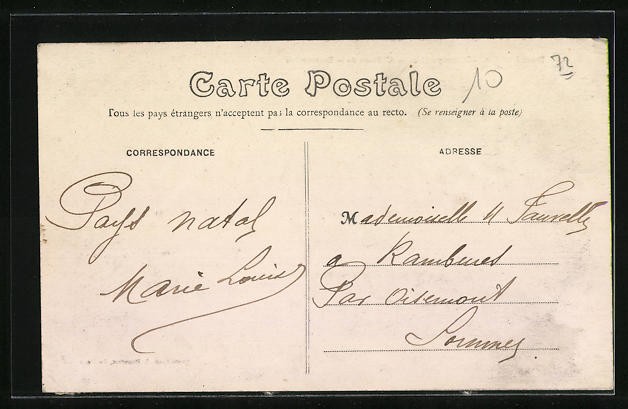 Carte Postale
10
72
Tous les pays étrangers n'acceptent pas la correspondance au recto. (Se renseigner à la poste)
CORRESPONDANCE
ADRESSE
Pays natal
Marie Louise
Mademoiselle
a Rambures
Par Oisemont
Somme